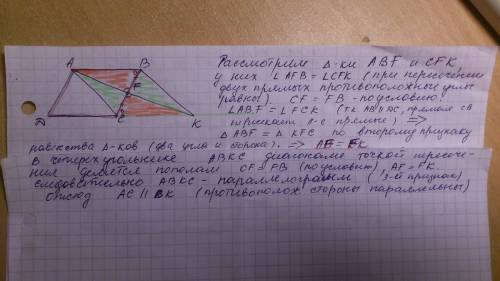 A B
F
D C K
Рассмотрим Δ-ки ABF и CFK,
у них ∠AFB = ∠CFK (при пересечении
двух прямых противоположные углы
равны). CF = FB - по условию.
∠ABF = ∠FCK (т.к. AB || DC, прямая CB
пересекает прямые) ⇒
ΔABF = ΔKFC по второму признаку
равенства Δ-ков (два угла и сторона). ⇒ AF = FK
В четырехугольнике ABKC диагонали точкой пересече-
ния делятся пополам CF = FB (по условию), AF = FK.
следовательно ABKC - параллелограмм (3-ий признак)
Отсюд AC || BK (противополож стороны параллельны)